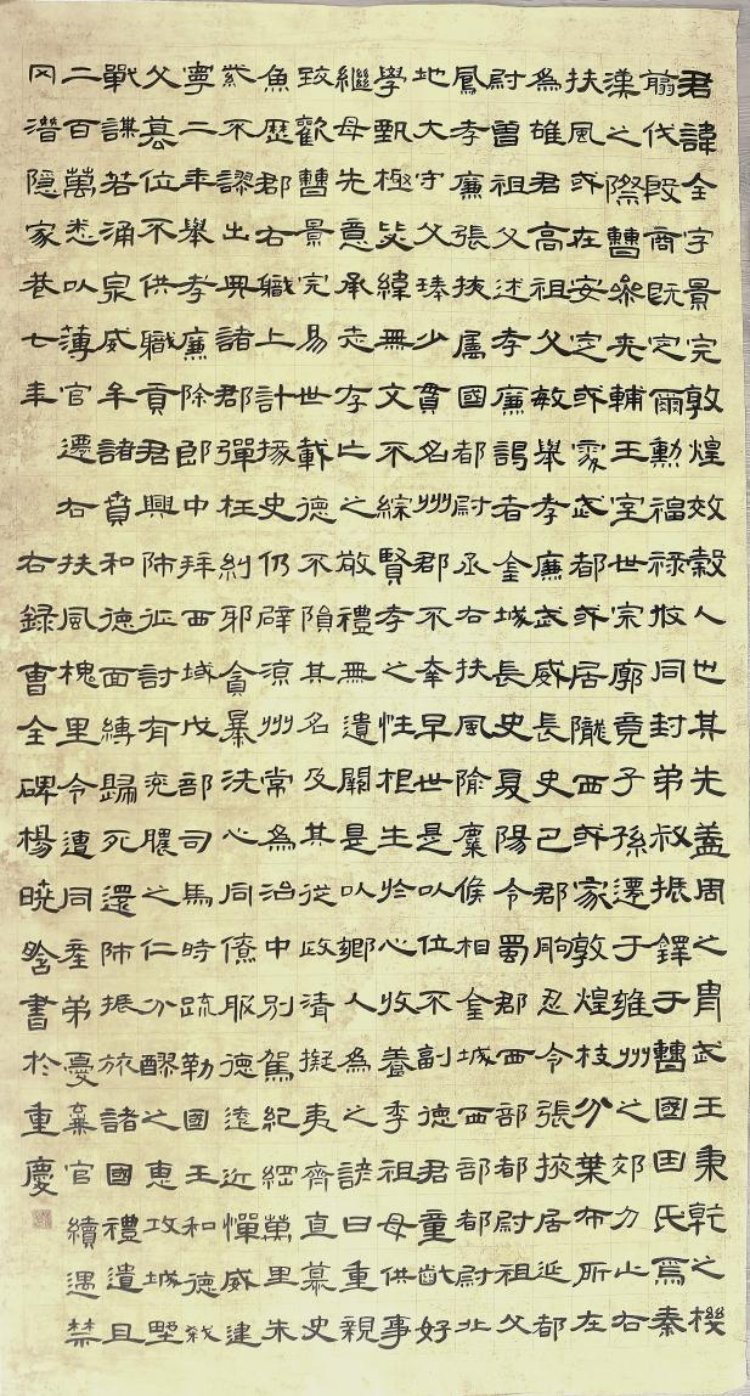 君諱全字景完敦煌效穀人也其先蓋周之胄武王秉乾之機
翦伐殷商既定爾勳福祿攸同封弟叔振鐸于曹國因氏焉秦
漢之際曹參夾輔王室世宗廓竟子孫遷于雍州之郊分止右
扶風或在安定或處武都或居隴西或家敦煌枝分葉布所在
為雄君高祖父敏舉孝廉武威長史巳郡朐忍令張掖居延都
尉曾祖父述孝廉謁者金城長史夏陽令蜀郡西部都尉祖父
鳳孝廉張掖屬國都尉丞右扶風隃麋侯相金城西部都尉北
地大守父琫少貫名州郡不幸早世是以位不副德君童齔好
學甄極毖緯無文不綜賢孝之性根生於心收養季祖母供事
繼母先意承志存亡之敬禮無遺闕是以鄉人為之諺曰重親
致歡曹景完易世載德不隕其名及其從政清擬夷齊直慕史
魚歷郡右職上計掾史仍辟涼州常為治中別駕紀綱萬里朱
紫不謬出典諸郡彈枉糾邪貪暴洗心同僚服德遠近憚威建
寧二年舉孝廉除郎中拜西域戊部司馬時疏勒國王和德弒
父篡位不供職貢君興師征討有兗膿之仁分醪之惠攻城野
戰謀若涌泉威牟諸賁和德面縛歸死還師振旅諸國禮遺且
二百萬悉以薄官遷右扶風槐里令遭同產弟憂棄官續遇禁
冈潛隱家巷七年 右錄曹全碑楊曉晗書於重慶